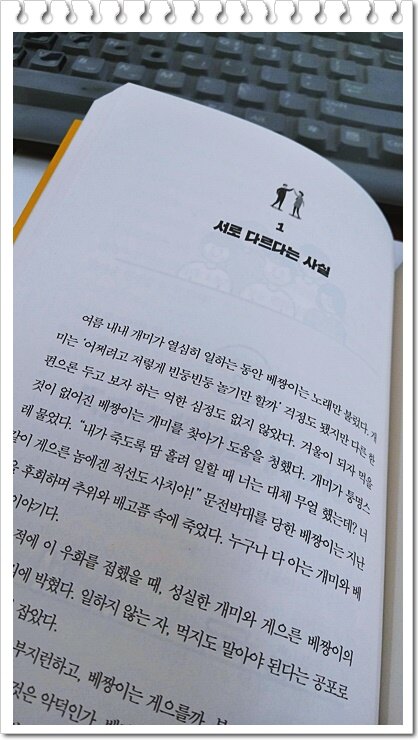 1
서로 다르다는 사실
여름 내내 개미가 열심히 일하는 동안 베짱이는 노래만 불렀다. 개
미는 ‘어쩌려고 저렇게 빈둥빈둥 놀기만 할까’ 걱정도 됐지만 다른 한
편으론 두고 보자 하는 억한 심정도 없지 않았다. 겨울이 되자 먹을
것이 없어진 베짱이는 개미를 찾아가 도움을 청했다. 개미가 퉁명스
레 물었다. “내가 죽도록 땀 흘려 일할 때 너는 대체 무얼 했는데? 너
같이 게으른 놈에겐 적선도 사치야!” 문전박대를 당한 베짱이는 지난
후회하며 추위와 배고픔 속에 죽었다. 누구나 다 아는 개미와 베
이야기다.
적에 이 우화를 접했을 때, 성실한 개미와 게으른 베짱이의
박혔다. 일하지 않는 자, 먹지도 말아야 된다는 공포로
잡았다.
부지런하고, 베짱이는 게으를까.
것은 악덕인가.